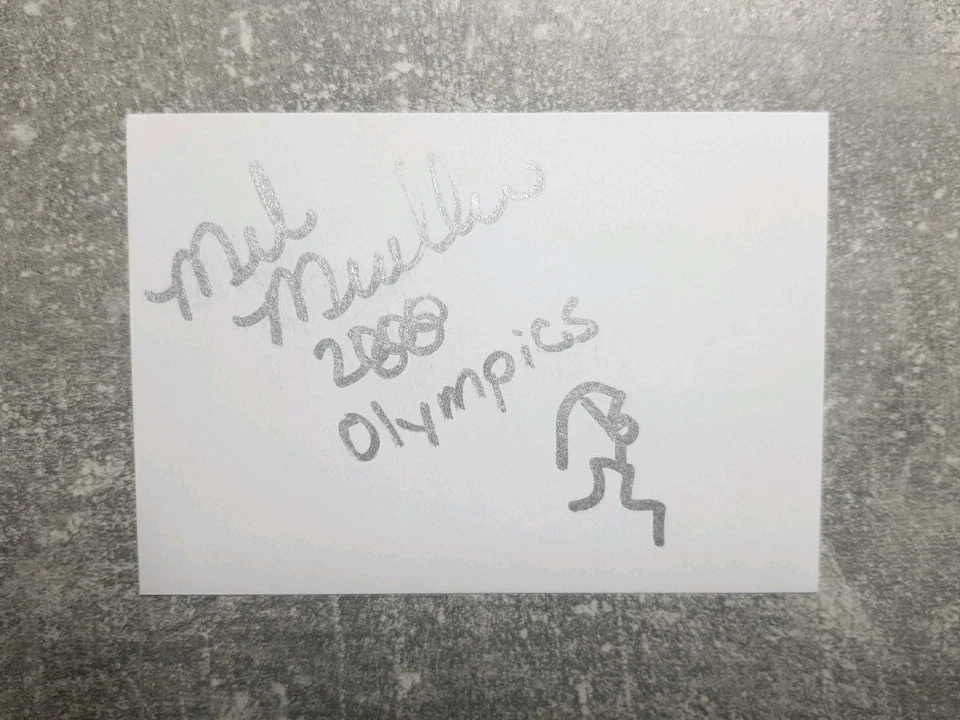 Mel
Mueller
2000
Olympics